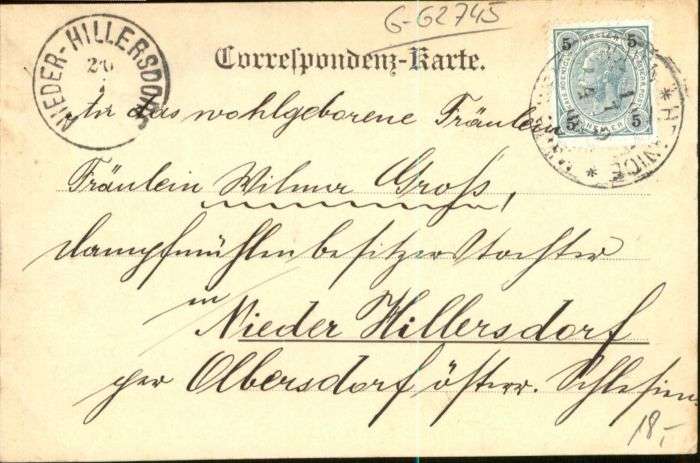 G-G2745
Correspondenz-Karte.
NIEDER-HILLERSDORF
20
5 5
5 5
An das wohlgeborene Fräulein
Fräulein Wilma Groß,
Dampfmühlenbesitzerstochter
in
Nieder Hillersdorf
per Olbersdorf österr. Schlesien
18,-